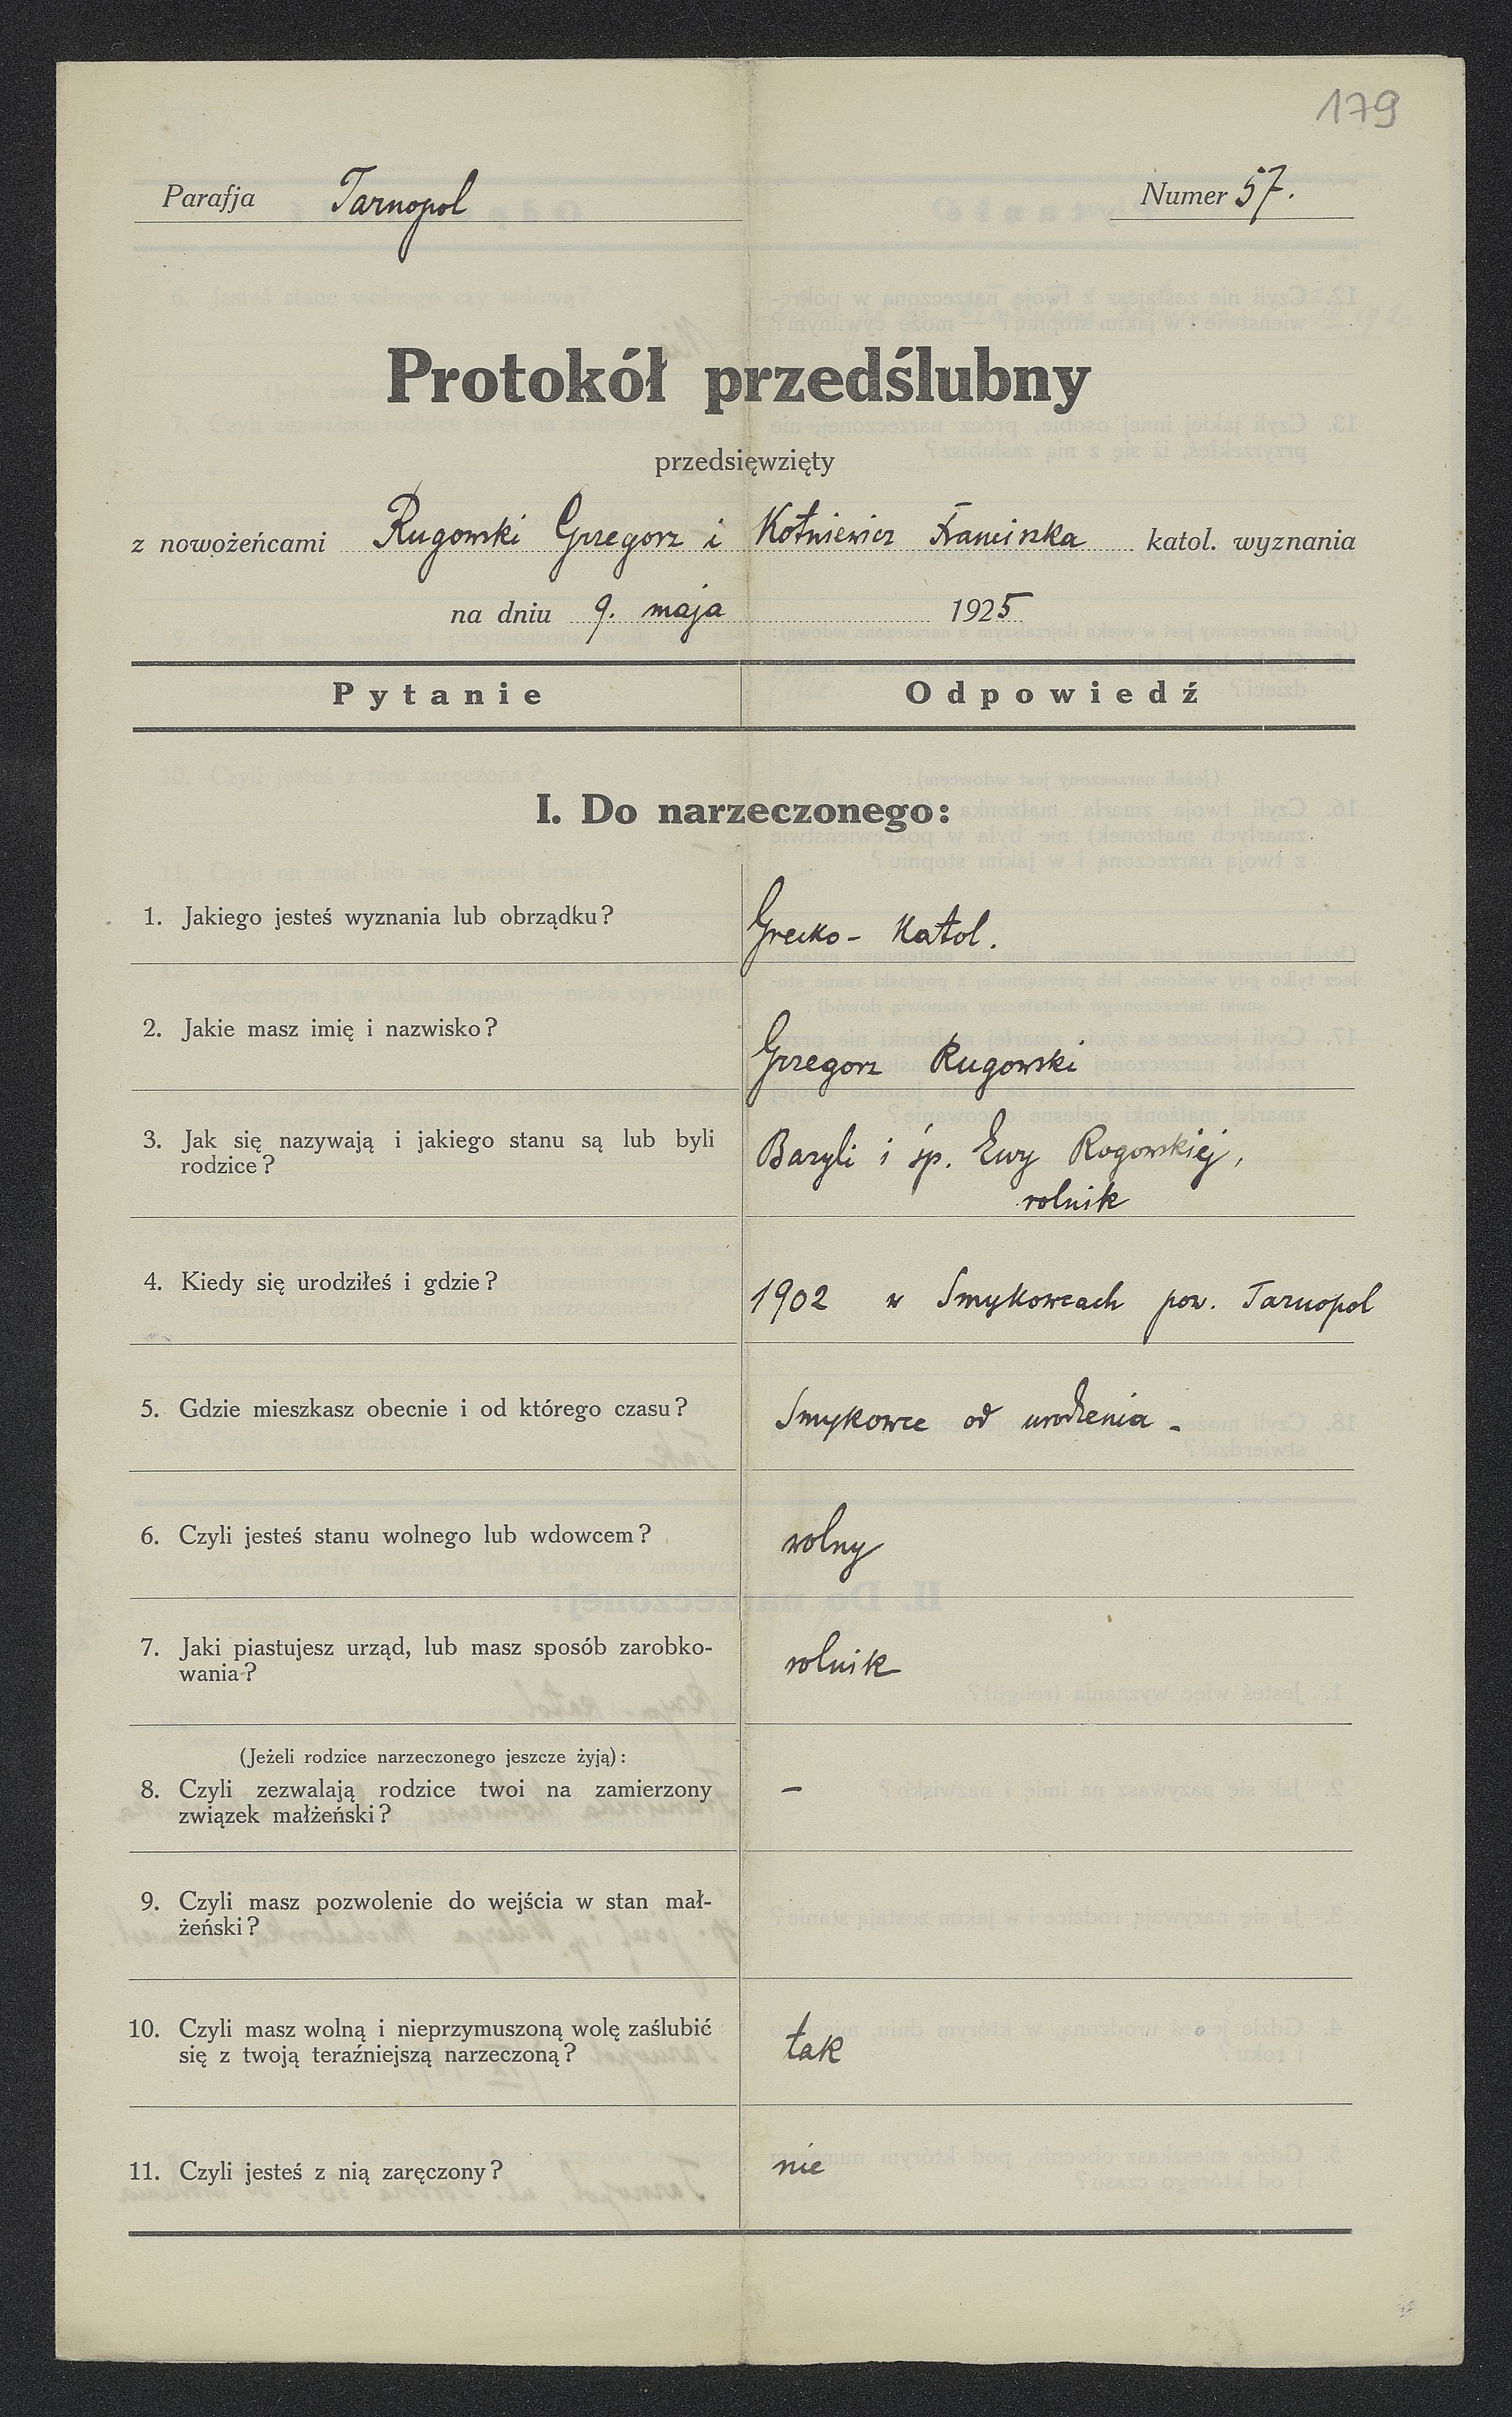 179
Parafja Tarnopol Numer 57.
Protokół przedślubny
przedsięwzięty
z nowożeńcami Rugowski Grzegorz i Kotniewicz Franciszka katol. wyznania
na dniu 9. maja 1925
Pytanie Odpowiedź
I. Do narzeczonego:
1. Jakiego jesteś wyznania lub obrządku? Grecko-katol.
2. Jakie masz imię i nazwisko? Grzegorz Rugowski
3. Jak się nazywają i jakiego stanu są lub byli Bazyli i śp. Ewy Rogowskiej,
rodzice? rolnik
4. Kiedy się urodziłeś i gdzie? 1902 w Smykowcach pow. Tarnopol
5. Gdzie mieszkasz obecnie i od którego czasu? Smykowce od urodzenia -
6. Czyli jesteś stanu wolnego lub wdowcem? wolny
7. Jaki piastujesz urząd, lub masz sposób zarobko-
wania? rolnik
(Jeżeli rodzice narzeczonego jeszcze żyją):
8. Czyli zezwalają rodzice twoi na zamierzony –
związek małżeński?
9. Czyli masz pozwolenie do wejścia w stan mał-
żeński?
10. Czyli masz wolną i nieprzymuszoną wolę zaślubić
się z twoją teraźniejszą narzeczoną? tak
11. Czyli jesteś z nią zaręczony? nie